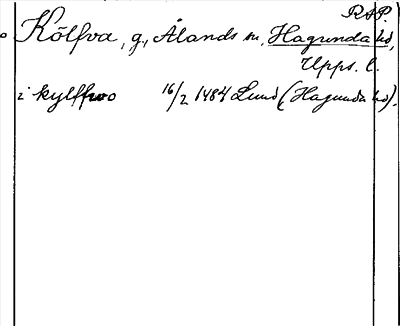 RAP.
Kölfva, g., Ålands sn, Hagunda hd,
Upps. l.
i kylffwo 16/2 1484 Lund (Hagunda hd).